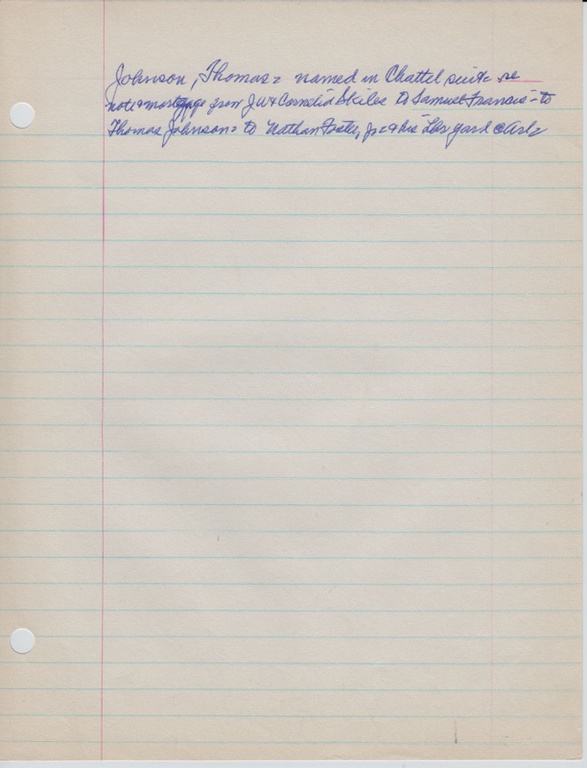 Johnson, Thomas = named in Chattel suite re
note & mortgage from J W & Cornelia Skiles to Samuel Francis = to
Thomas Johnson = to Nathan Jr = & his yard